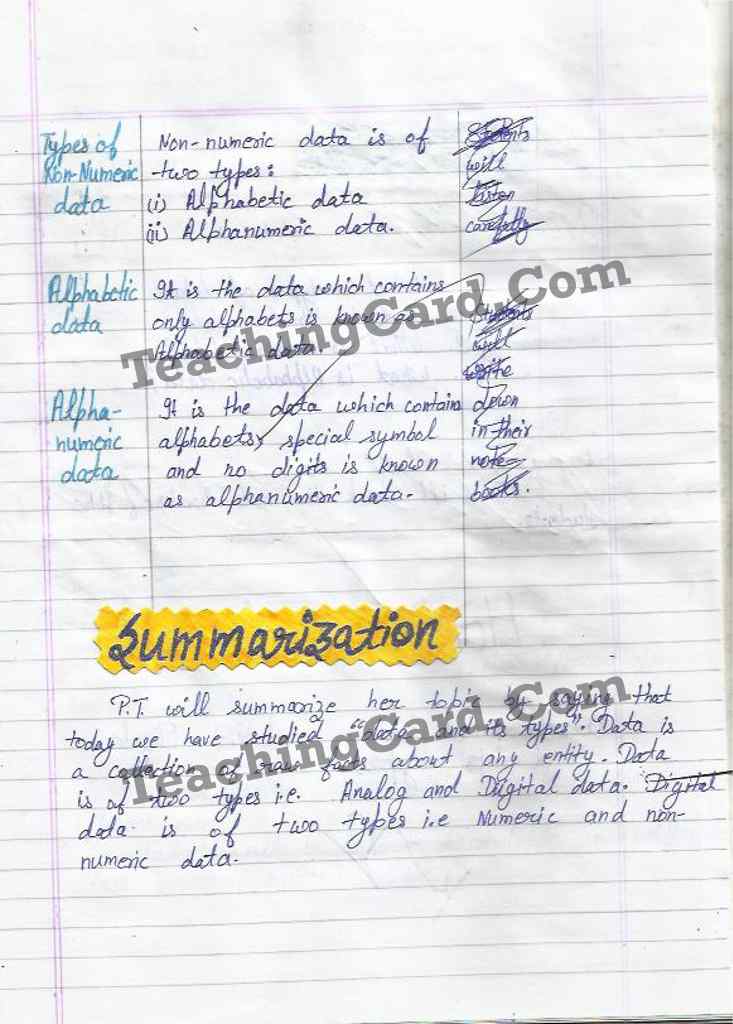 Types of
Non-Numeric
data
Non-numeric data is of
two types:
(i) Alphabetic data
(ii) Alphanumeric data.
Students
will
listen
carefully
Alphabetic
data
It is the data which contains
only alphabets is known as
Alphabetic data.
Students
will
write
down
in their
note
books.
TeachingCard.Com
Alpha-
numeric
data
It is the data which contains
alphabets, special symbol
and no digits is known
as alphanumeric data.
Summarization
P.T. will summarize her topic by saying that
today we have studied "data and its types". Data is
a collection of raw facts about any entity. Data
is of two types i.e. Analog and Digital data. Digital
data is of two types i.e Numeric and non-
numeric data.
TeachingCard.Com